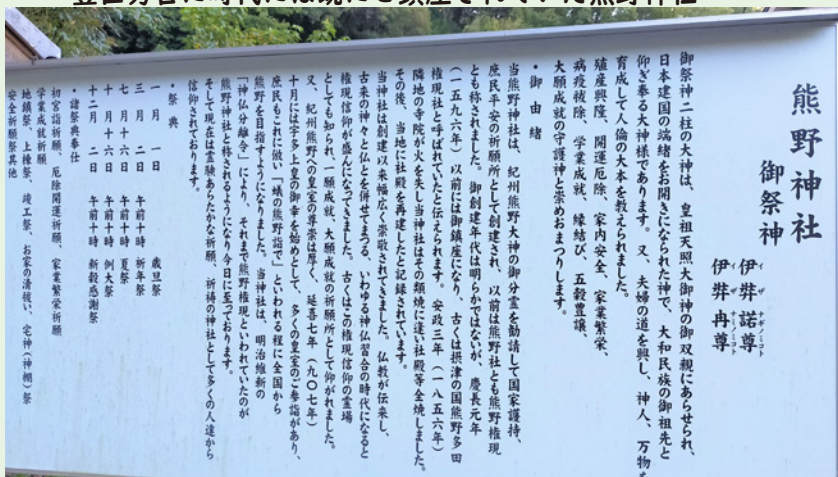 豊臣秀吉に時代には既にご鎮座されていた熊野神社
熊野神社
御祭神
伊弉諾尊
イザナギノミコト
伊弉冉尊
イザナミノミコト
御祭神二柱の大神は、皇祖天照大御神の御双親にあらせられ、
日本建国の端緒をお開きになられた神で、大和民族の御祖先と
仰ぎ奉る大神様であります。又、夫婦の道を興し、神人、万物を
育成して人倫の大本を教えられました。
殖産興隆、開運厄除、家内安全、家業繁栄、
病疫祓除、学業成就、縁結び、五穀豊穣、
大願成就の守護神と崇めおまつりします。
・御由緒
当熊野神社は、紀州熊野大神の御分霊を勧請して国家護持、
庶民平安の祈願所として創建され、以前は熊野社とも熊野権現
とも称されました。御創建年代は明らかではないが、慶長元年
(一五九六年)以前には御鎮座になり、古くは摂津の国熊野多田
権現社と呼ばれていたと伝えられます。安政三年(一八五六年)
隣地の寺院が火を失し当神社はその類焼に逢い社殿等全焼しました。
その後、当地に社殿を再建したと記録されています。
当神社は創建以来幅広く崇敬されてきました。仏教が伝来し、
古来の神々と仏とを併せてまつる、いわゆる神仏習合の時代になると
権現信仰が盛んになってきました。古くはこの権現信仰の霊場
としても知られ、一願成就、大願成就の祈願所として仰がれました。
又、紀州熊野への皇室の尊崇は厚く、延喜七年(九〇七年)
十月には宇多上皇の御幸を始めとして、多くの皇室のご参詣があり、
庶民もこれに倣い「蟻の熊野詣で」といわれる程に全国から
熊野を目指すようになりました。当神社は、明治維新の
「神仏分離令」により、それまで熊野権現といわれていたのが
熊野神社と称されるようになり今日に至っております。
そして現在は霊験あらたかな祈願、祈祷の神社として多くの人達から
信仰されております。
・祭典
一月一日 歳旦祭
三月二日 午前十時 祈年祭
七月十六日 午前十時 夏祭
十月十六日 午前十時 例大祭
十二月二日 午前十時 新穀感謝祭
・諸祭典奉仕
初宮詣祈願、厄除開運祈願、家業繁栄祈願
学業成就祈願
地鎮祭、上棟祭、竣工祭、お家の清祓い、宅神(神棚)祭
安全祈願祭其他